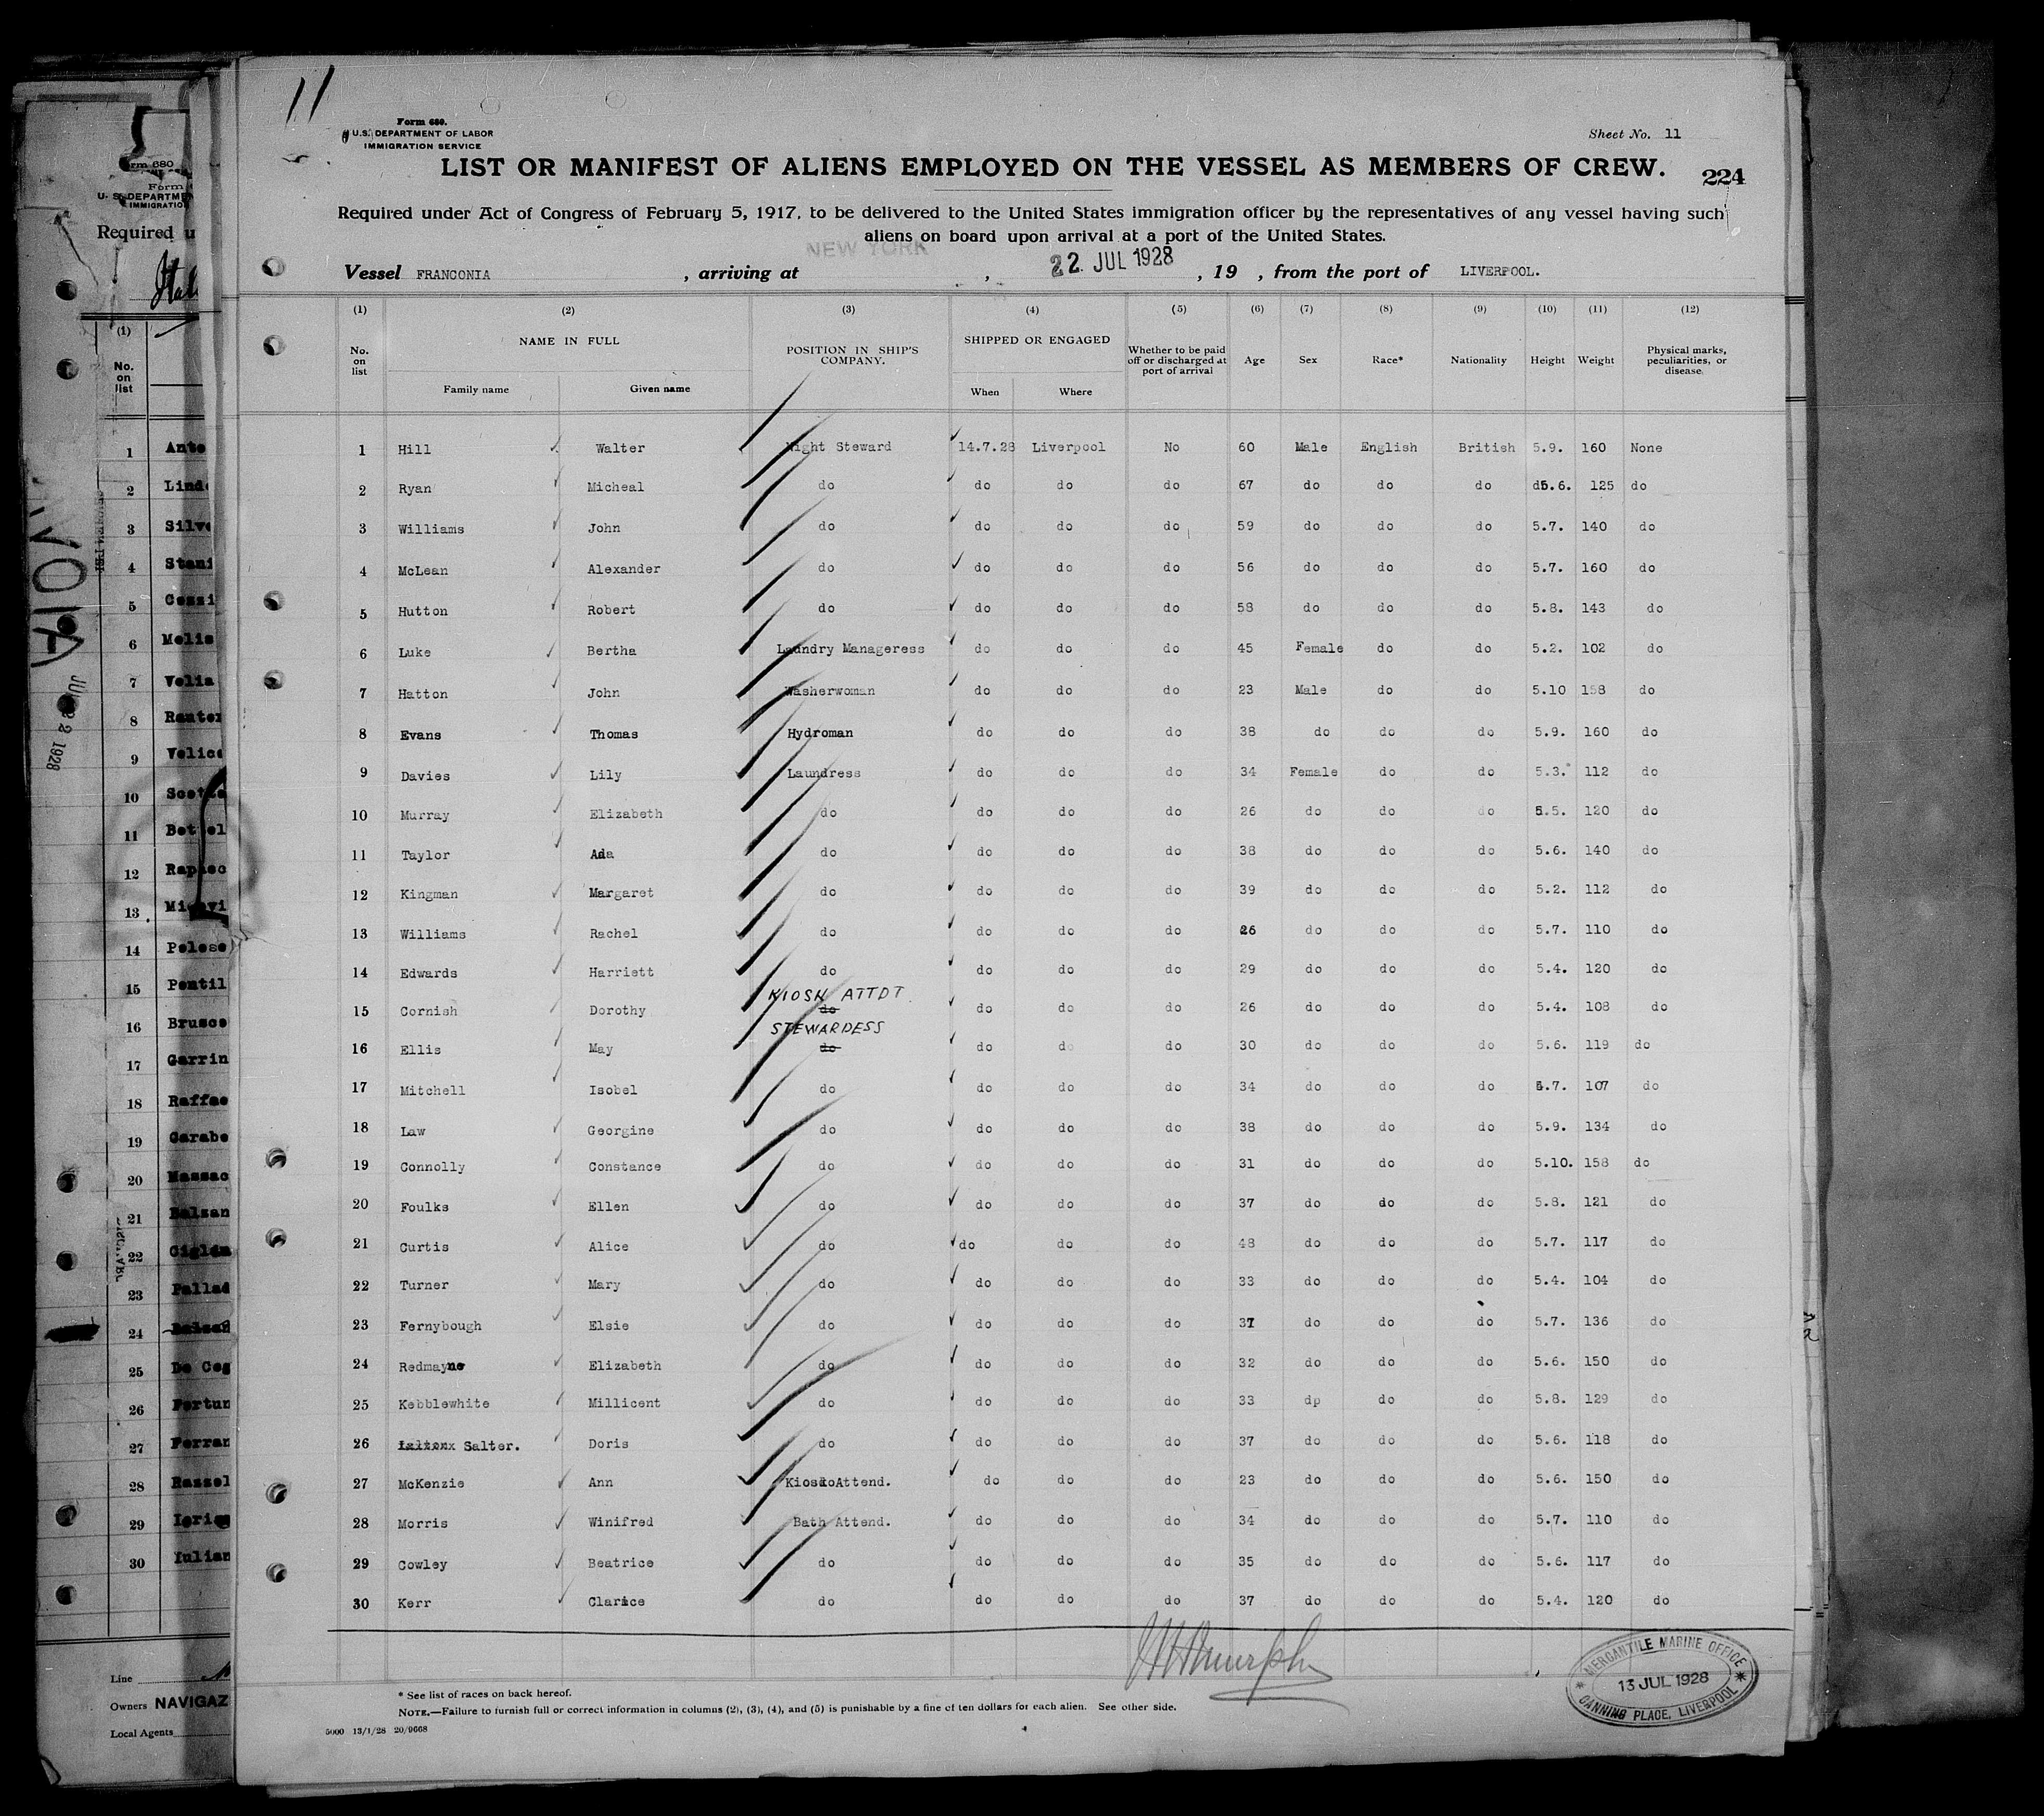 11
Form 680.
U.S. DEPARTMENT OF LABOR
IMMIGRATION SERVICE
Sheet No. 11
LIST OR MANIFEST OF ALIENS EMPLOYED ON THE VESSEL AS MEMBERS OF CREW.
224
Required under Act of Congress of February 5, 1917, to be delivered to the United States immigration officer by the representatives of any vessel having such
aliens on board upon arrival at a port of the United States.
Vessel FRANCONIA, arriving at NEW YORK, 22 JUL 1928, 19 , from the port of LIVERPOOL.
(1) (2) (3) (4) (5) (6) (7) (8) (9) (10) (11) (12)
No. on list NAME IN FULL Family name Given name POSITION IN SHIP'S COMPANY. SHIPPED OR ENGAGED When Where Whether to be paid off or discharged at port of arrival Age Sex Race* Nationality Height Weight Physical marks, peculiarities, or disease.
1 Hill Walter Night Steward 14.7.28 Liverpool No 60 Male English British 5.9. 160 None
2 Ryan Micheal do do do do 67 do do do 5.6. 125 do
3 Williams John do do do do 59 do do do 5.7. 140 do
4 McLean Alexander do do do do 56 do do do 5.7. 160 do
5 Hutton Robert do do do do 58 do do do 5.8. 143 do
6 Luke Bertha Laundry Manageress do do do 45 Female do do 5.2. 102 do
7 Hatton John Washerwoman do do do 23 Male do do 5.10 158 do
8 Evans Thomas Hydroman do do do 38 do do do 5.9. 160 do
9 Davies Lily Laundress do do do 34 Female do do 5.3. 112 do
10 Murray Elizabeth do do do do 26 do do do 5.5. 120 do
11 Taylor Ada do do do do 38 do do do 5.6. 140 do
12 Kingman Margaret do do do do 39 do do do 5.2. 112 do
13 Williams Rachel do do do do 26 do do do 5.7. 110 do
14 Edwards Harriett do do do do 29 do do do 5.4. 120 do
KIOSK ATTDT.
15 Cornish Dorothy do do do do 26 do do do 5.4. 108 do
STEWARDESS
16 Ellis May do do do do 30 do do do 5.6. 119 do
17 Mitchell Isobel do do do do 34 do do do 5.7. 107 do
18 Law Georgine do do do do 38 do do do 5.9. 134 do
19 Connolly Constance do do do do 31 do do do 5.10. 158 do
20 Foulks Ellen do do do do 37 do do do 5.8. 121 do
21 Curtis Alice do do do do 48 do do do 5.7. 117 do
22 Turner Mary do do do do 33 do do do 5.4. 104 do
23 Fernybough Elsie do do do do 37 do do do 5.7. 136 do
24 Redmayne Elizabeth do do do do 32 do do do 5.6. 150 do
25 Kebblewhite Millicent do do do do 33 dp do do 5.8. 129 do
26 Salter. Doris do do do do 37 do do do 5.6. 118 do
27 McKenzie Ann Kiosk Attend. do do do 23 do do do 5.6. 150 do
28 Morris Winifred Bath Attend. do do do 34 do do do 5.7. 110 do
29 Cowley Beatrice do do do do 35 do do do 5.6. 117 do
30 Kerr Clarice do do do do 37 do do do 5.4. 120 do
MERCANTILE MARINE OFFICE
13 JUL 1928
CANNING PLACE, LIVERPOOL
* See list of races on back hereof.
NOTE.—Failure to furnish full or correct information in columns (2), (3), (4), and (5) is punishable by a fine of ten dollars for each alien. See other side.
5000 13/1/28 20/9668
Form
U. S. DEPARTME
IMMIGRATIO
Required u
(1)
No. on list
1 Ante
2 Lind
3 Silve
4 Stani
5 Cossi
6 Melis
7 Velia
8 Rauter
9 Velico
10
11
12
13
14 Pelose
15 Pentil
16 Brusco
17 Garrin
18 Raffae
19 Garabe
20 Massac
21 Balzan
22
23 Pallad
24
25 De Ceg
26 Fortun
27 Ferran
28 Rassel
29
30 Iulian
Line
Owners NAVIGAZ
Local Agents